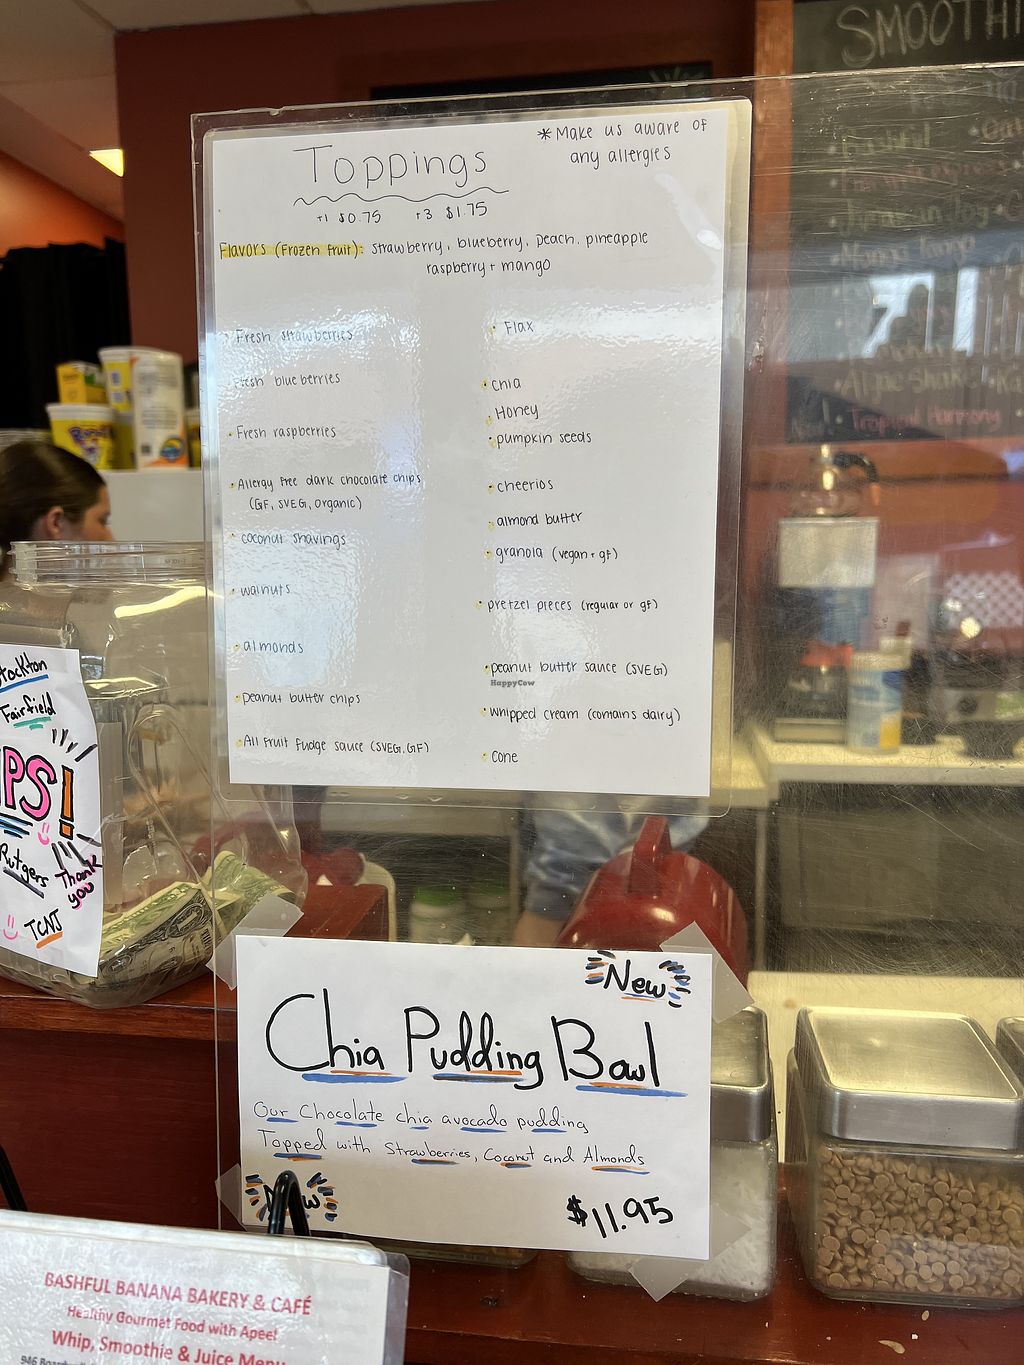 SMOOTHI
* Make us aware of
any allergies
Toppings
+1 $0.75 +3 $1.75
Flavors (Frozen fruit): strawberry, blueberry, peach, pineapple
raspberry + mango
Fresh strawberries
Fresh blueberries
Fresh raspberries
Allergy free dark chocolate chips
(GF, SVEG, organic)
coconut shavings
walnuts
almonds
Peanut butter chips
All fruit fudge sauce (SVEG, GF)
Flax
chia
Honey
pumpkin seeds
cheerios
almond butter
granola (vegan + gf)
pretzel pieces (regular or gf)
peanut butter sauce (SVEG)
HappyCow
Whipped cream (contains dairy)
cone
Mango Tango
Tropical Harmony
Stockton
Fairfield
IPS!
Rutgers
Thank
you
TCNJ
New
Chia Pudding Bowl
Our Chocolate chia avocado pudding
Topped with Strawberries, Coconut and Almonds
New
$11.95
BASHFUL BANANA BAKERY & CAFÉ
Healthy Gourmet Food with Apeel
Whip, Smoothie & Juice Menu